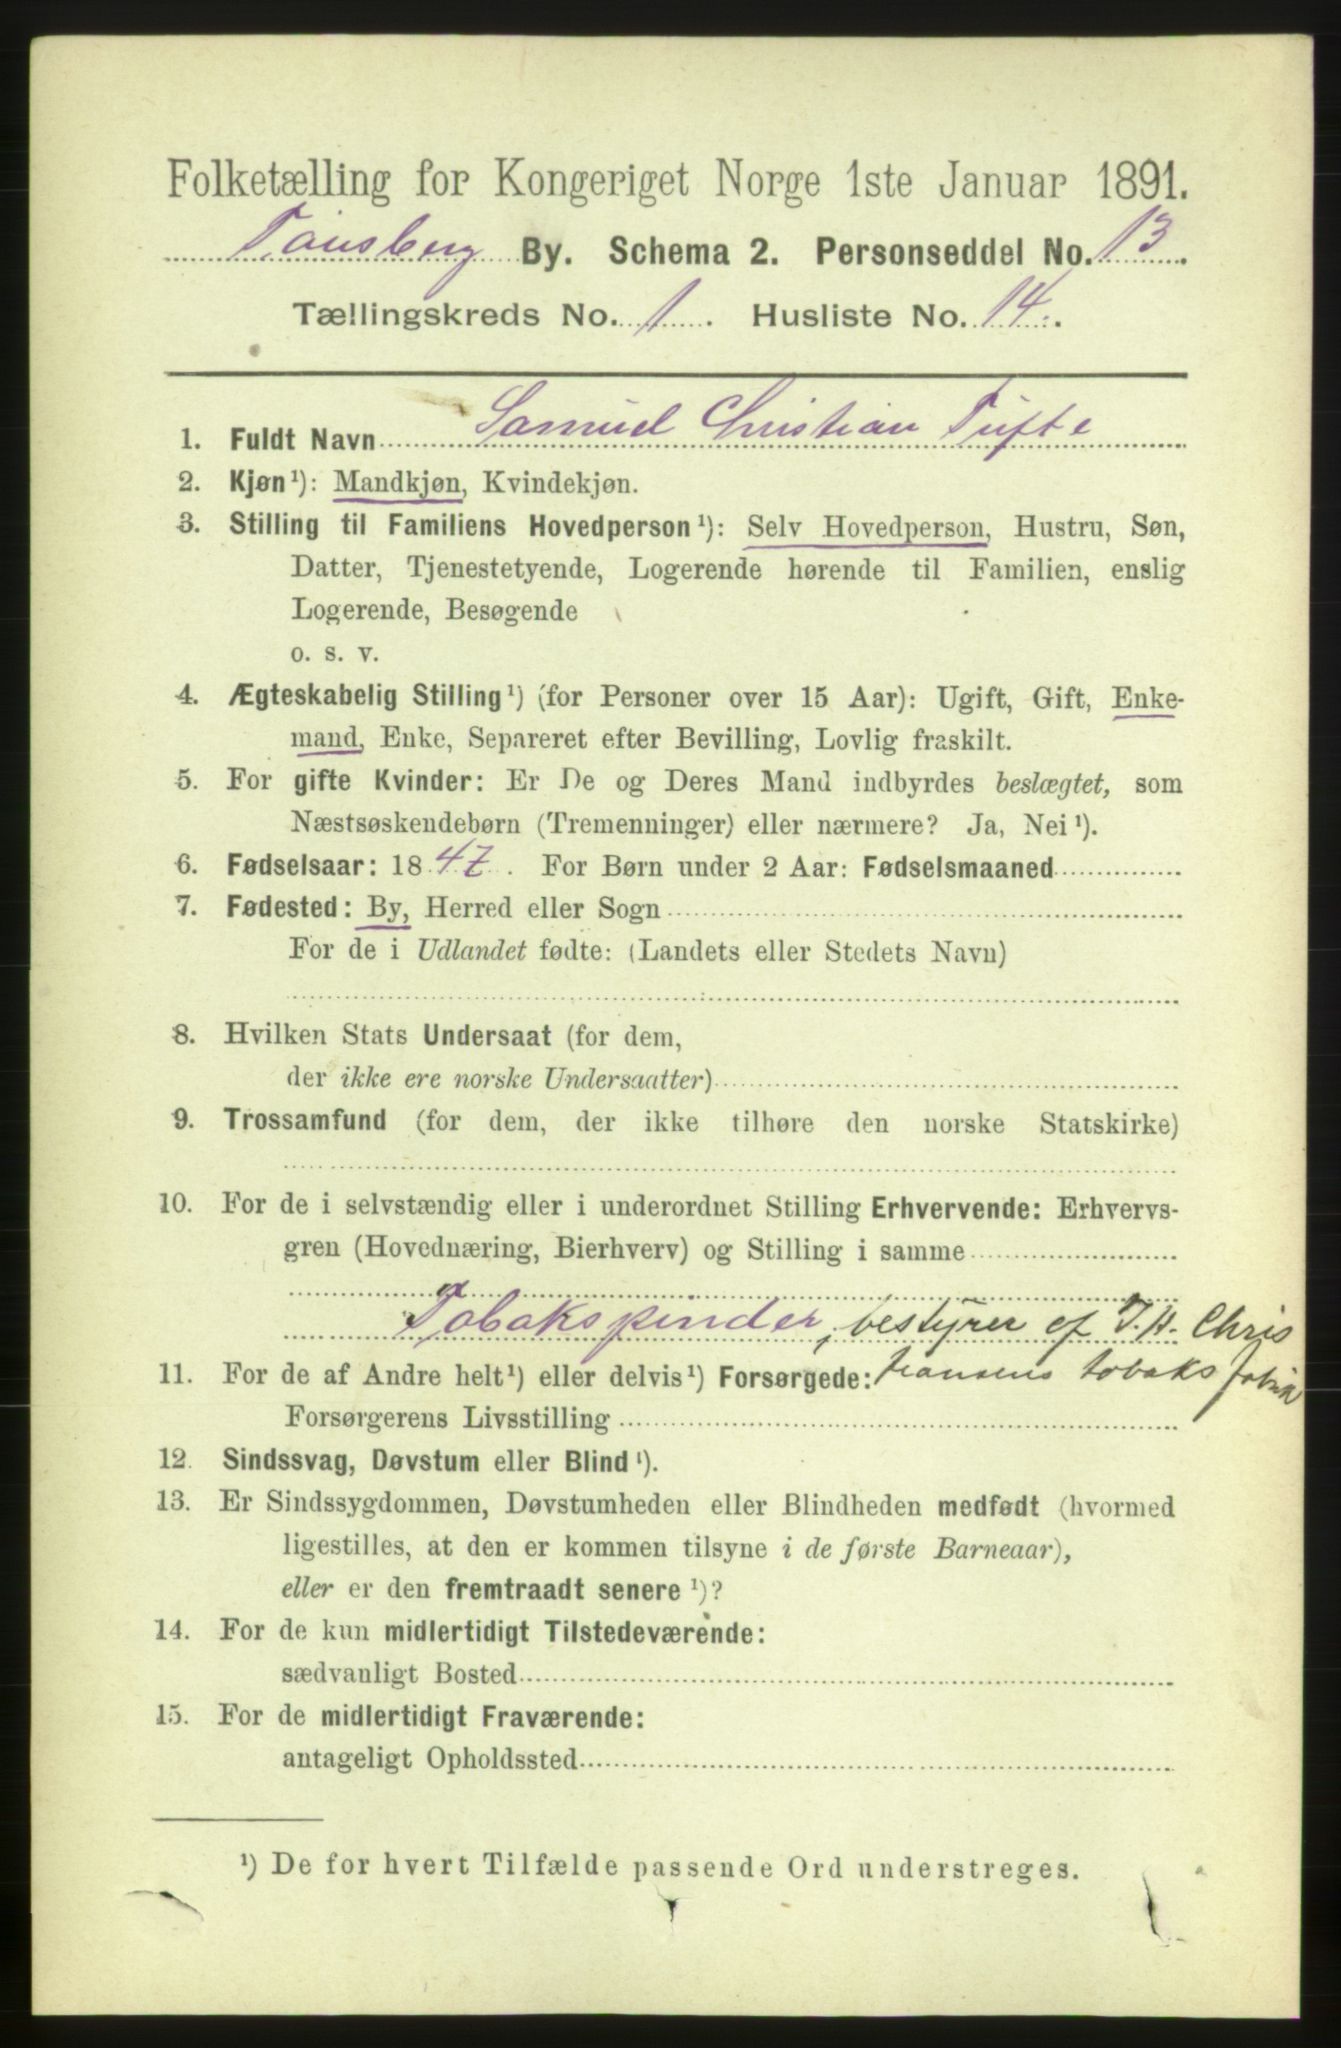 Folketælling for Kongeriget Norge 1ste Januar 1891.
Tønsberg By. Schema 2. Personseddel No. 13.
Tællingskreds No. 1. Husliste No. 14.
1. Fuldt Navn Samuel Christian Tufte
2. Kjøn¹): Mandkjøn, Kvindekjøn.
3. Stilling til Familiens Hovedperson¹): Selv Hovedperson, Hustru, Søn,
Datter, Tjenestetyende, Logerende hørende til Familien, enslig
Logerende, Besøgende
o. s. v.
4. Ægteskabelig Stilling¹) (for Personer over 15 Aar): Ugift, Gift, Enke-
mand, Enke, Separeret efter Bevilling, Lovlig fraskilt.
5. For gifte Kvinder: Er De og Deres Mand indbyrdes beslægtet, som
Næstsøskendebørn (Tremenninger) eller nærmere? Ja, Nei¹).
6. Fødselsaar: 1847. For Børn under 2 Aar: Fødselsmaaned
7. Fødested: By, Herred eller Sogn
For de i Udlandet fødte: (Landets eller Stedets Navn)
8. Hvilken Stats Undersaat (for dem,
der ikke ere norske Undersaatter)
9. Trossamfund (for dem, der ikke tilhøre den norske Statskirke)
10. For de i selvstændig eller i underordnet Stilling Erhvervende: Erhvervs-
gren (Hovednæring, Bierhverv) og Stilling i samme
Tobakspinder, bestyrer af J. H. Chris
11. For de af Andre helt¹) eller delvis¹) Forsørgede: tiansens tobaks fabrik
Forsørgerens Livsstilling
12. Sindssvag, Døvstum eller Blind¹).
13. Er Sindssygdommen, Døvstumheden eller Blindheden medfødt (hvormed
ligestilles, at den er kommen tilsyne i de første Barneaar),
eller er den fremtraadt senere¹)?
14. For de kun midlertidigt Tilstedeværende:
sædvanligt Bosted
15. For de midlertidigt Fraværende:
antageligt Opholdssted
¹) De for hvert Tilfælde passende Ord understreges.